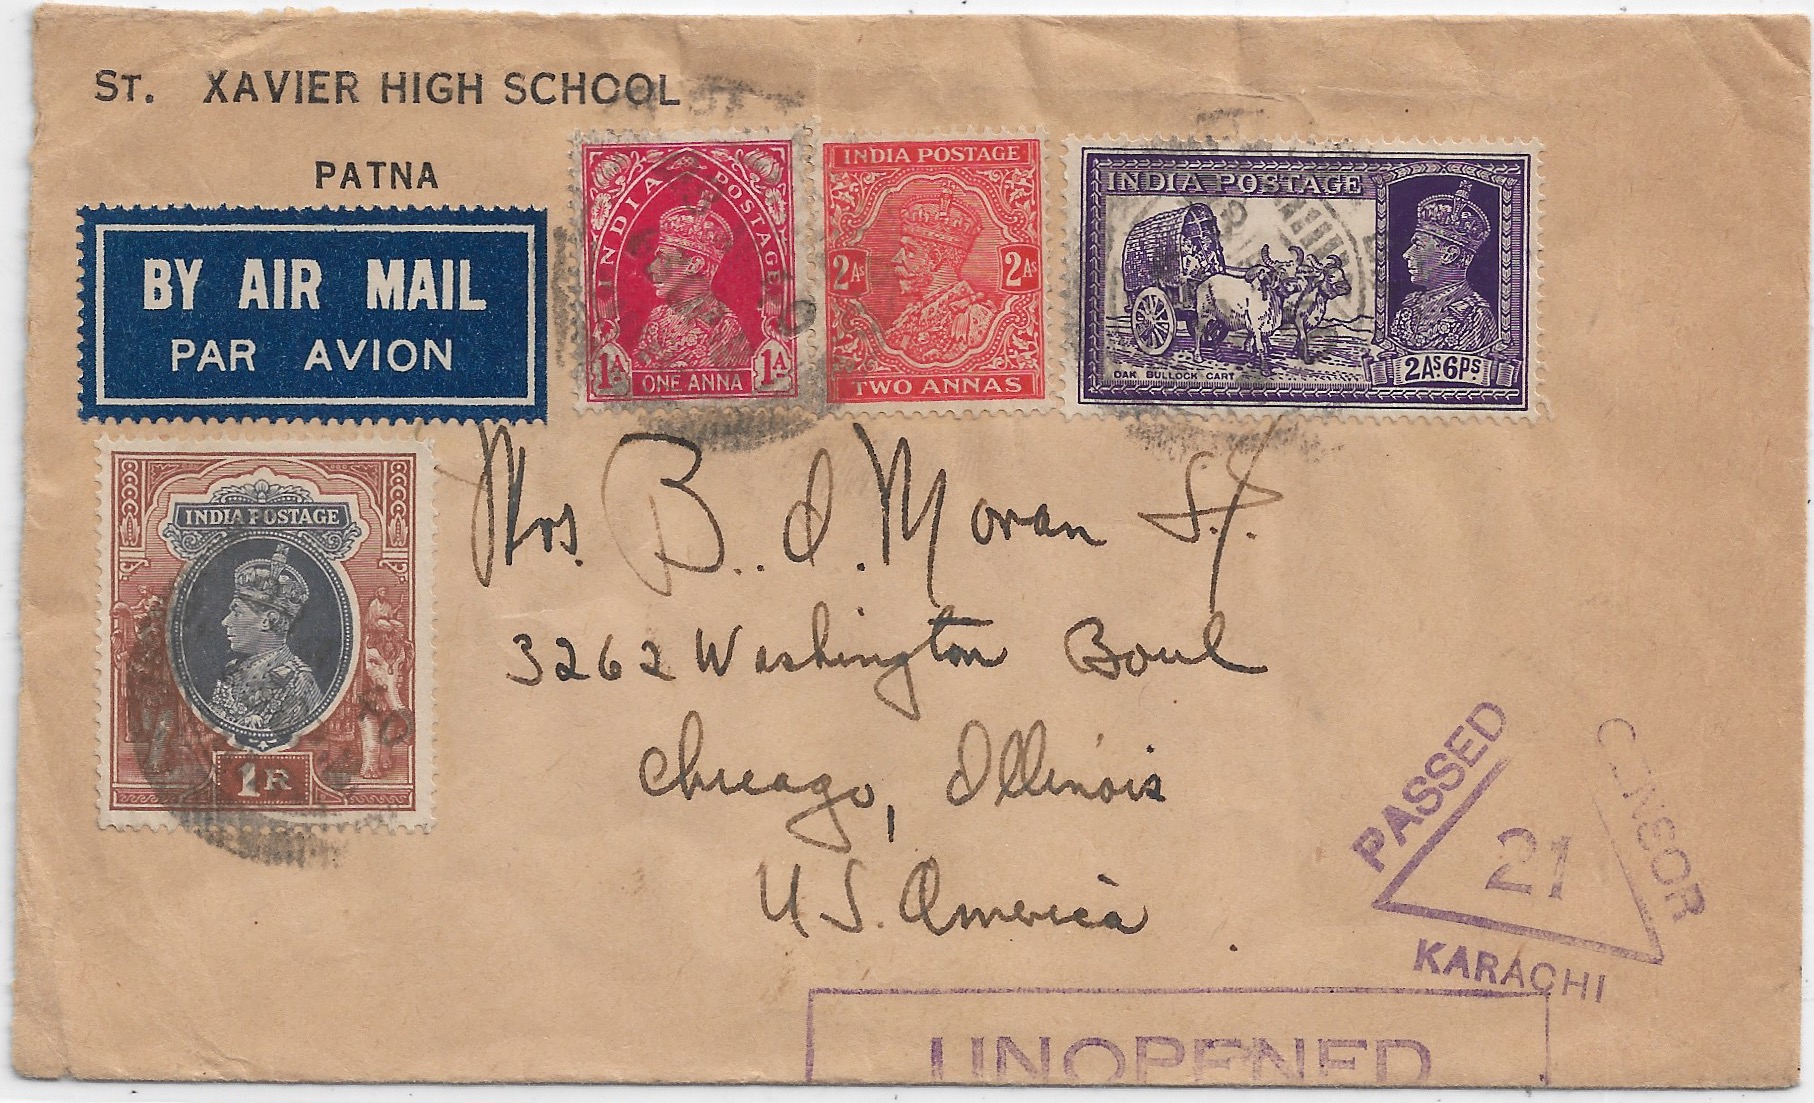 ST. XAVIER HIGH SCHOOL
PATNA
BY AIR MAIL
PAR AVION
INDIA POSTAGE
1A ONE ANNA 1A
INDIA POSTAGE
2As 2As
TWO ANNAS
INDIA POSTAGE
DAK BULLOCK CART
2As6ps
INDIA POSTAGE
1R
Mrs. B. J. Moran Sr.
3262 Washington Boul
Chicago, Illinois
U.S. America
PASSED
CENSOR
21
KARACHI
UNOPENED